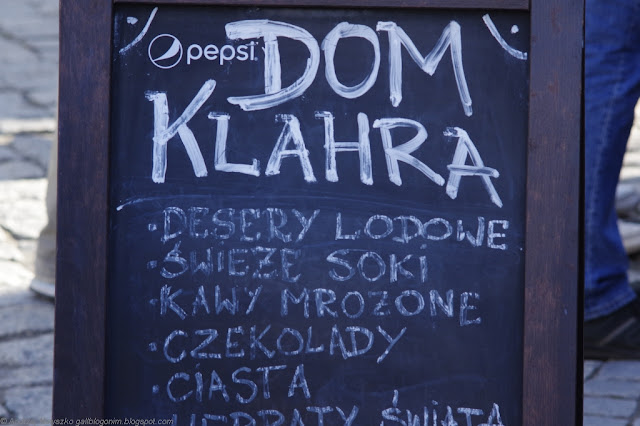 pepsi
DOM
KLAHRA
• DESERY LODOWE
• ŚWIEŻE SOKI
• KAWY MROŻONE
• CZEKOLADY
• CIASTA
HERBATY ŚWIATA
galiblogonim.blogspot.com